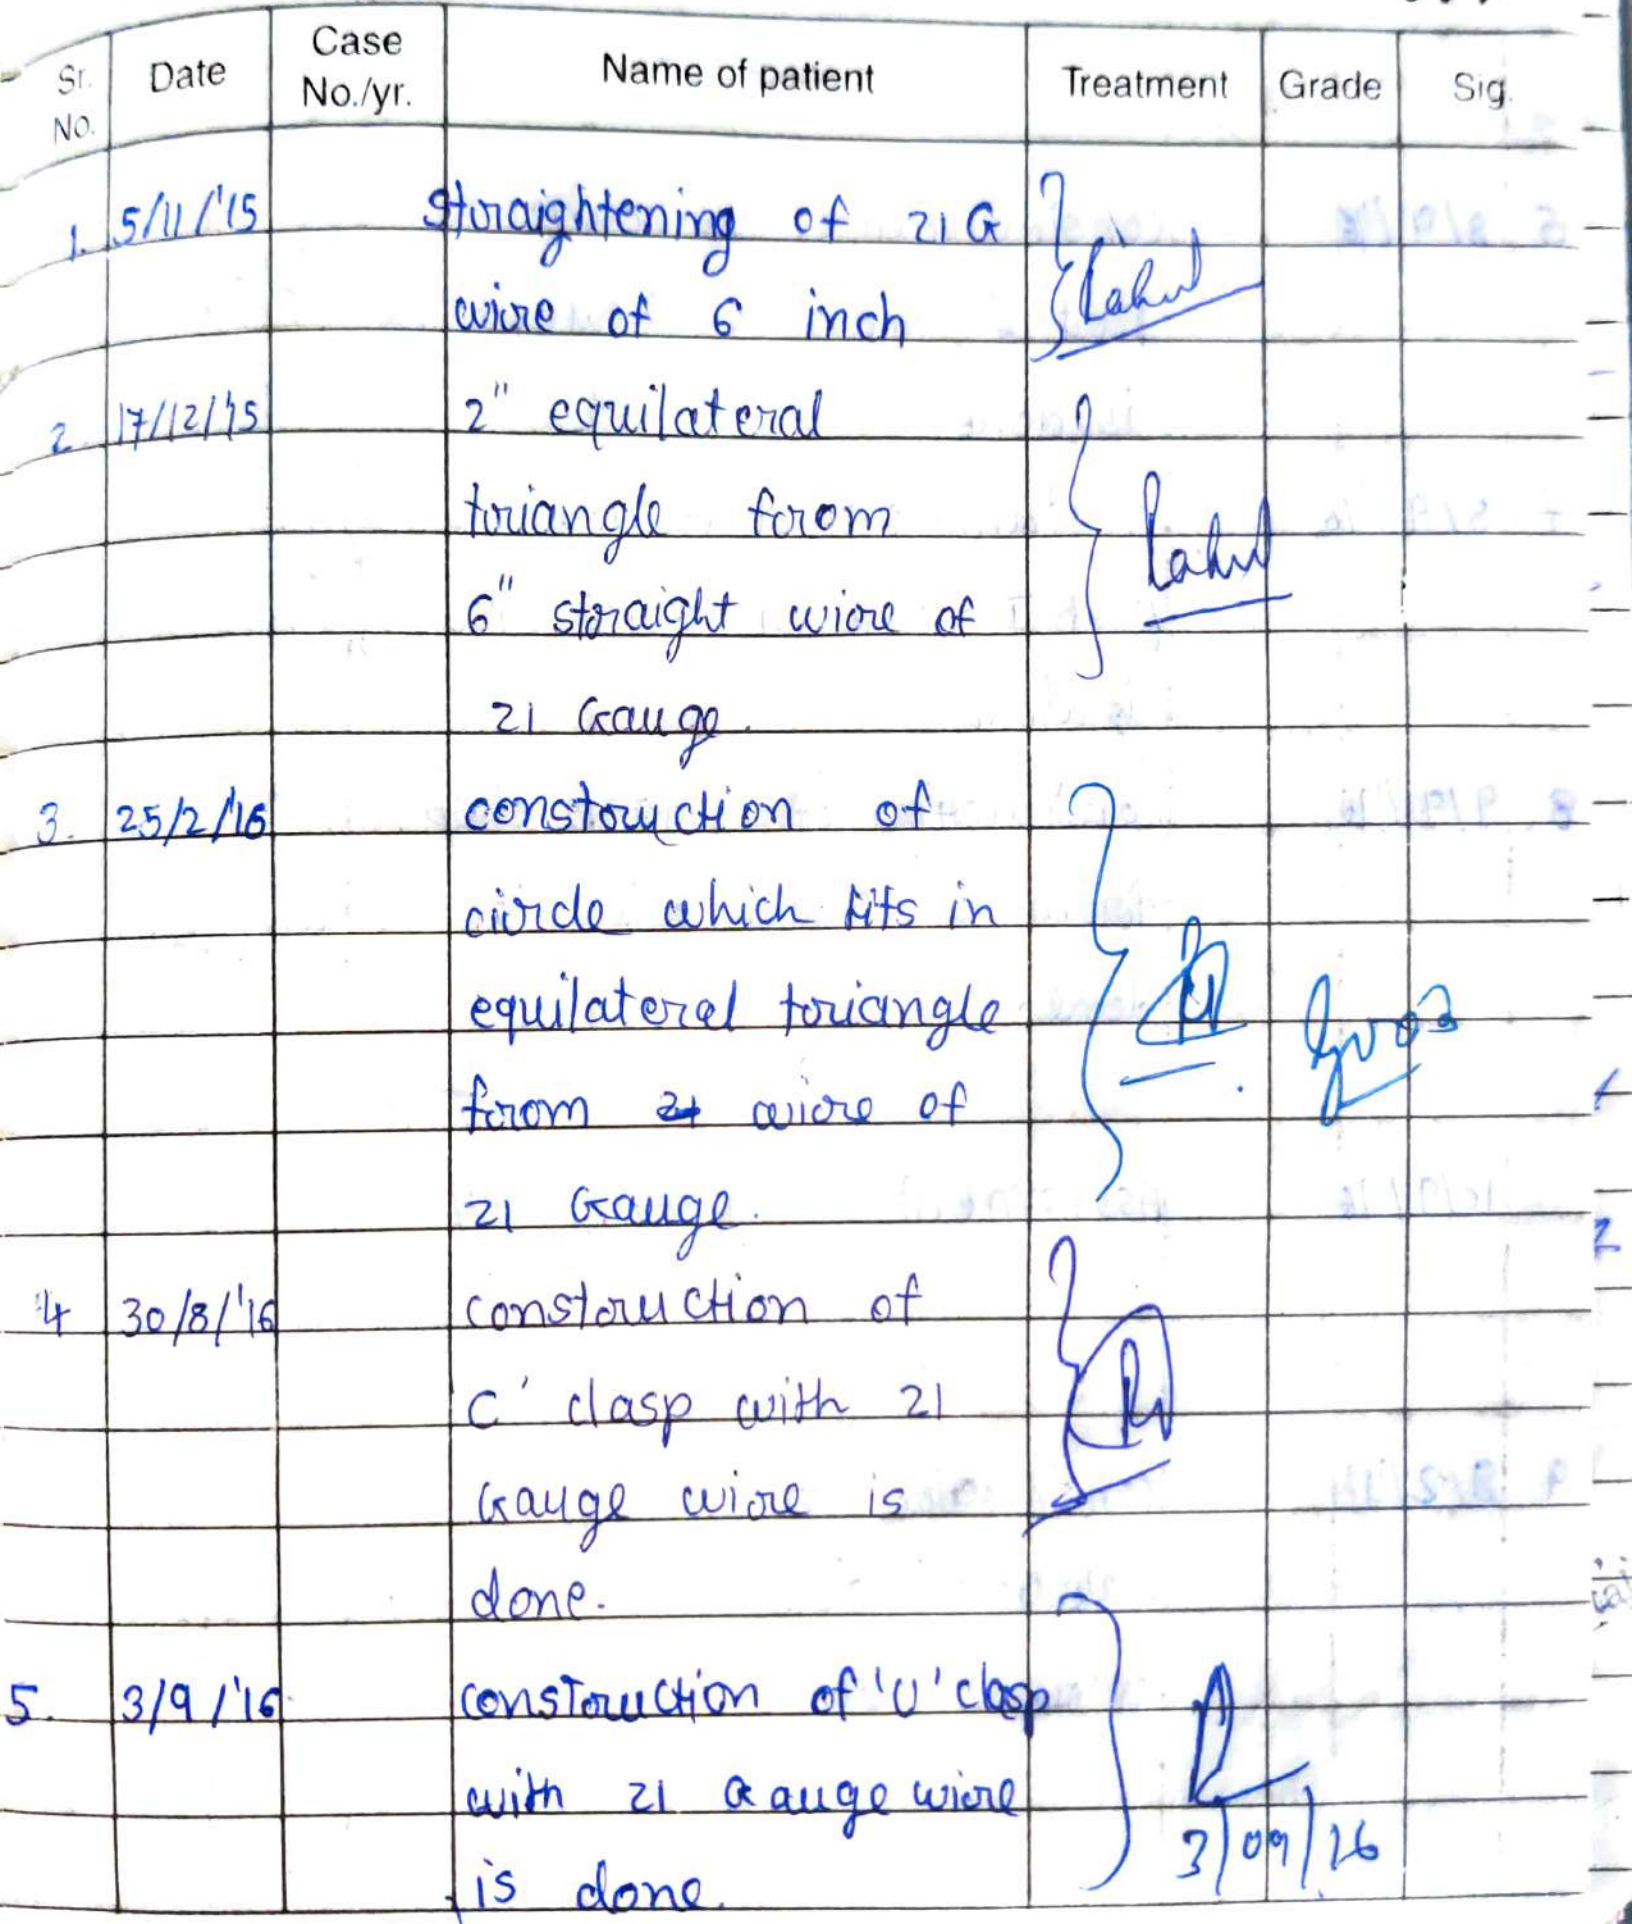 Sr. No. Date Case No./yr. Name of patient Treatment Grade Sig.
1. 5/11/'15 Straightening of 21 G
wire of 6 inch
2. 17/12/15 2" equilateral
triangle from
6" straight wire of
21 Gauge.
3. 25/2/'16 construction of
circle which fits in
equilateral triangle
Good
from wire of
21 Gauge.
4 30/8/'16 construction of
C' clasp with 21
Gauge wire is
done.
5. 3/9/'16 construction of 'U' clasp
with 21 Gauge wire
3/09/16
is done.